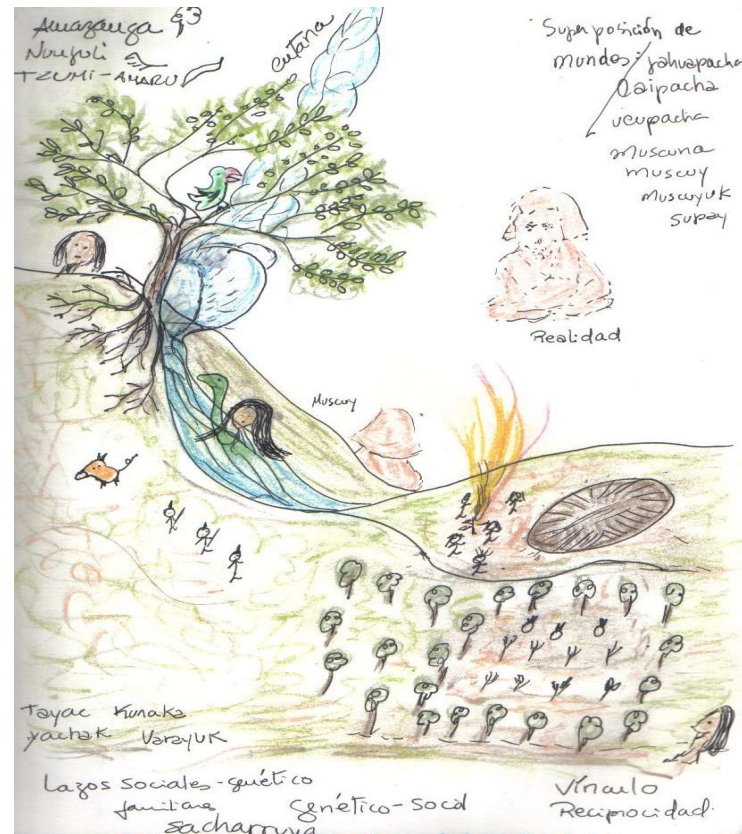 Amazanga
Nunguli
TZUMI-AMARU
cutana
Superposición de
mundos: jahuapacha
Caipacha
ucupacha
muscuna
muscuy
muscuyuk
supay
Realidad
Muscuy
Tayac Kunaka
yachak Varayuk
Lazos Sociales-genético
familiares
Genético-Social
sacharruya
Vínculo
Reciprocidad.